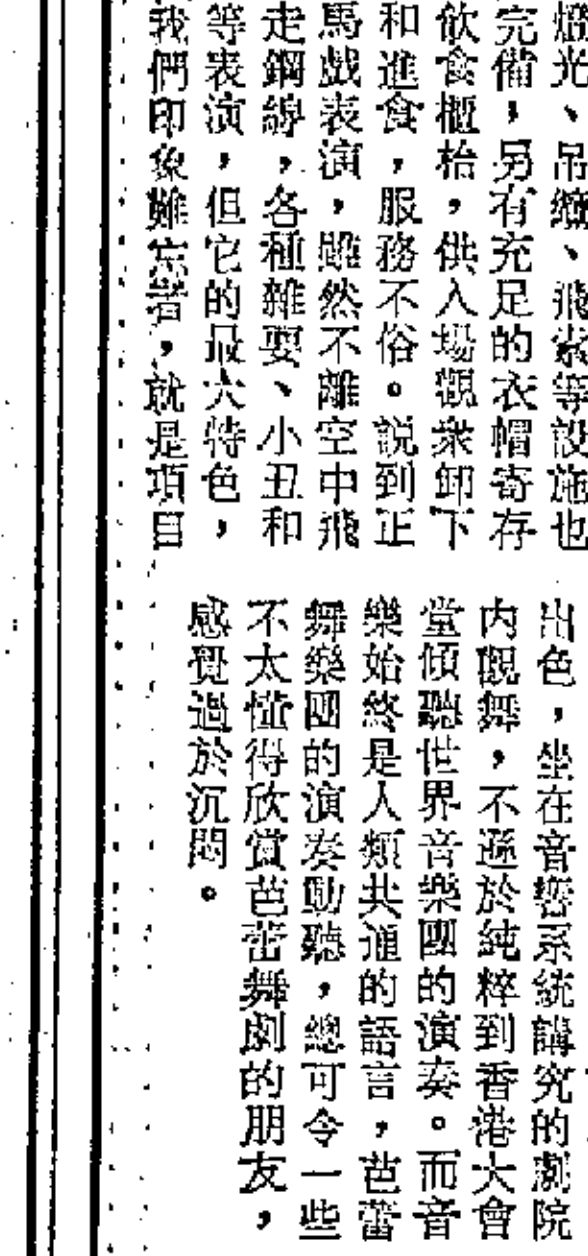 燈光、吊纜、飛索等設施也
完備，另有充足的衣帽寄存
飲食櫃枱，供入場觀衆卸下
和進食，服務不俗。說到正
馬戲表演，雖然不離空中飛
走鋼線，各種雜耍、小丑和
等表演，但它的最大特色，
我們印象難忘者，就是項目
出色，坐在音響系統講究的劇院
内觀舞，不遜於純粹到香港大會
堂傾聽世界音樂團的演奏。而音
樂始終是人類共通的語言，芭蕾
舞樂團的演奏動聽，總可令一些
不太懂得欣賞芭蕾舞劇的朋友，
感覺過於沉悶。